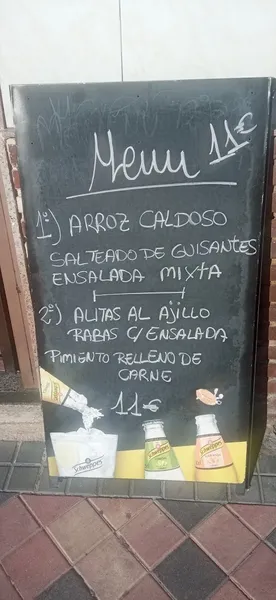 Menu 11€
1º) ARROZ CALDOSO
SALTEADO DE GUISANTES
ENSALADA MIXTA
2º) ALITAS AL AJILLO
RABAS C/ ENSALADA
PIMIENTO RELLENO DE
CARNE
11€
Schweppes
Schweppes
Schweppes